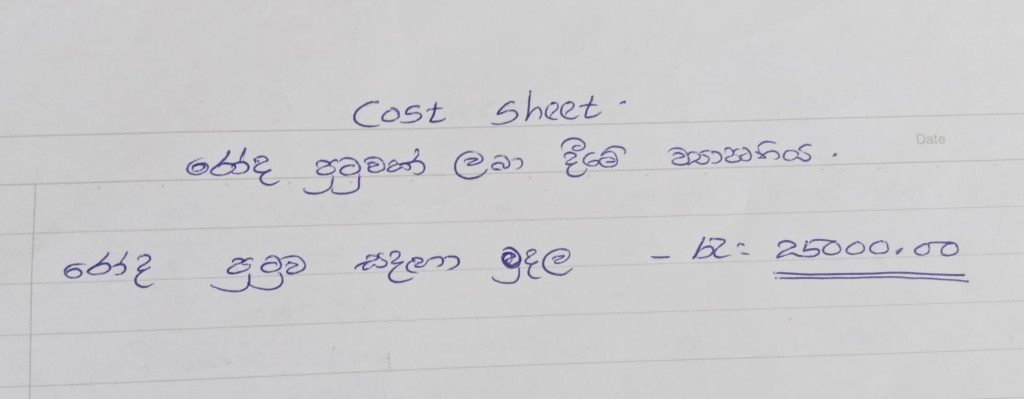 Cost Sheet.
Date
රෝද පුටුවක් ලබා දීමේ ව්‍යාපෘතිය.
රෝද පුටුව සඳහා මුදල - රු = 25000.00